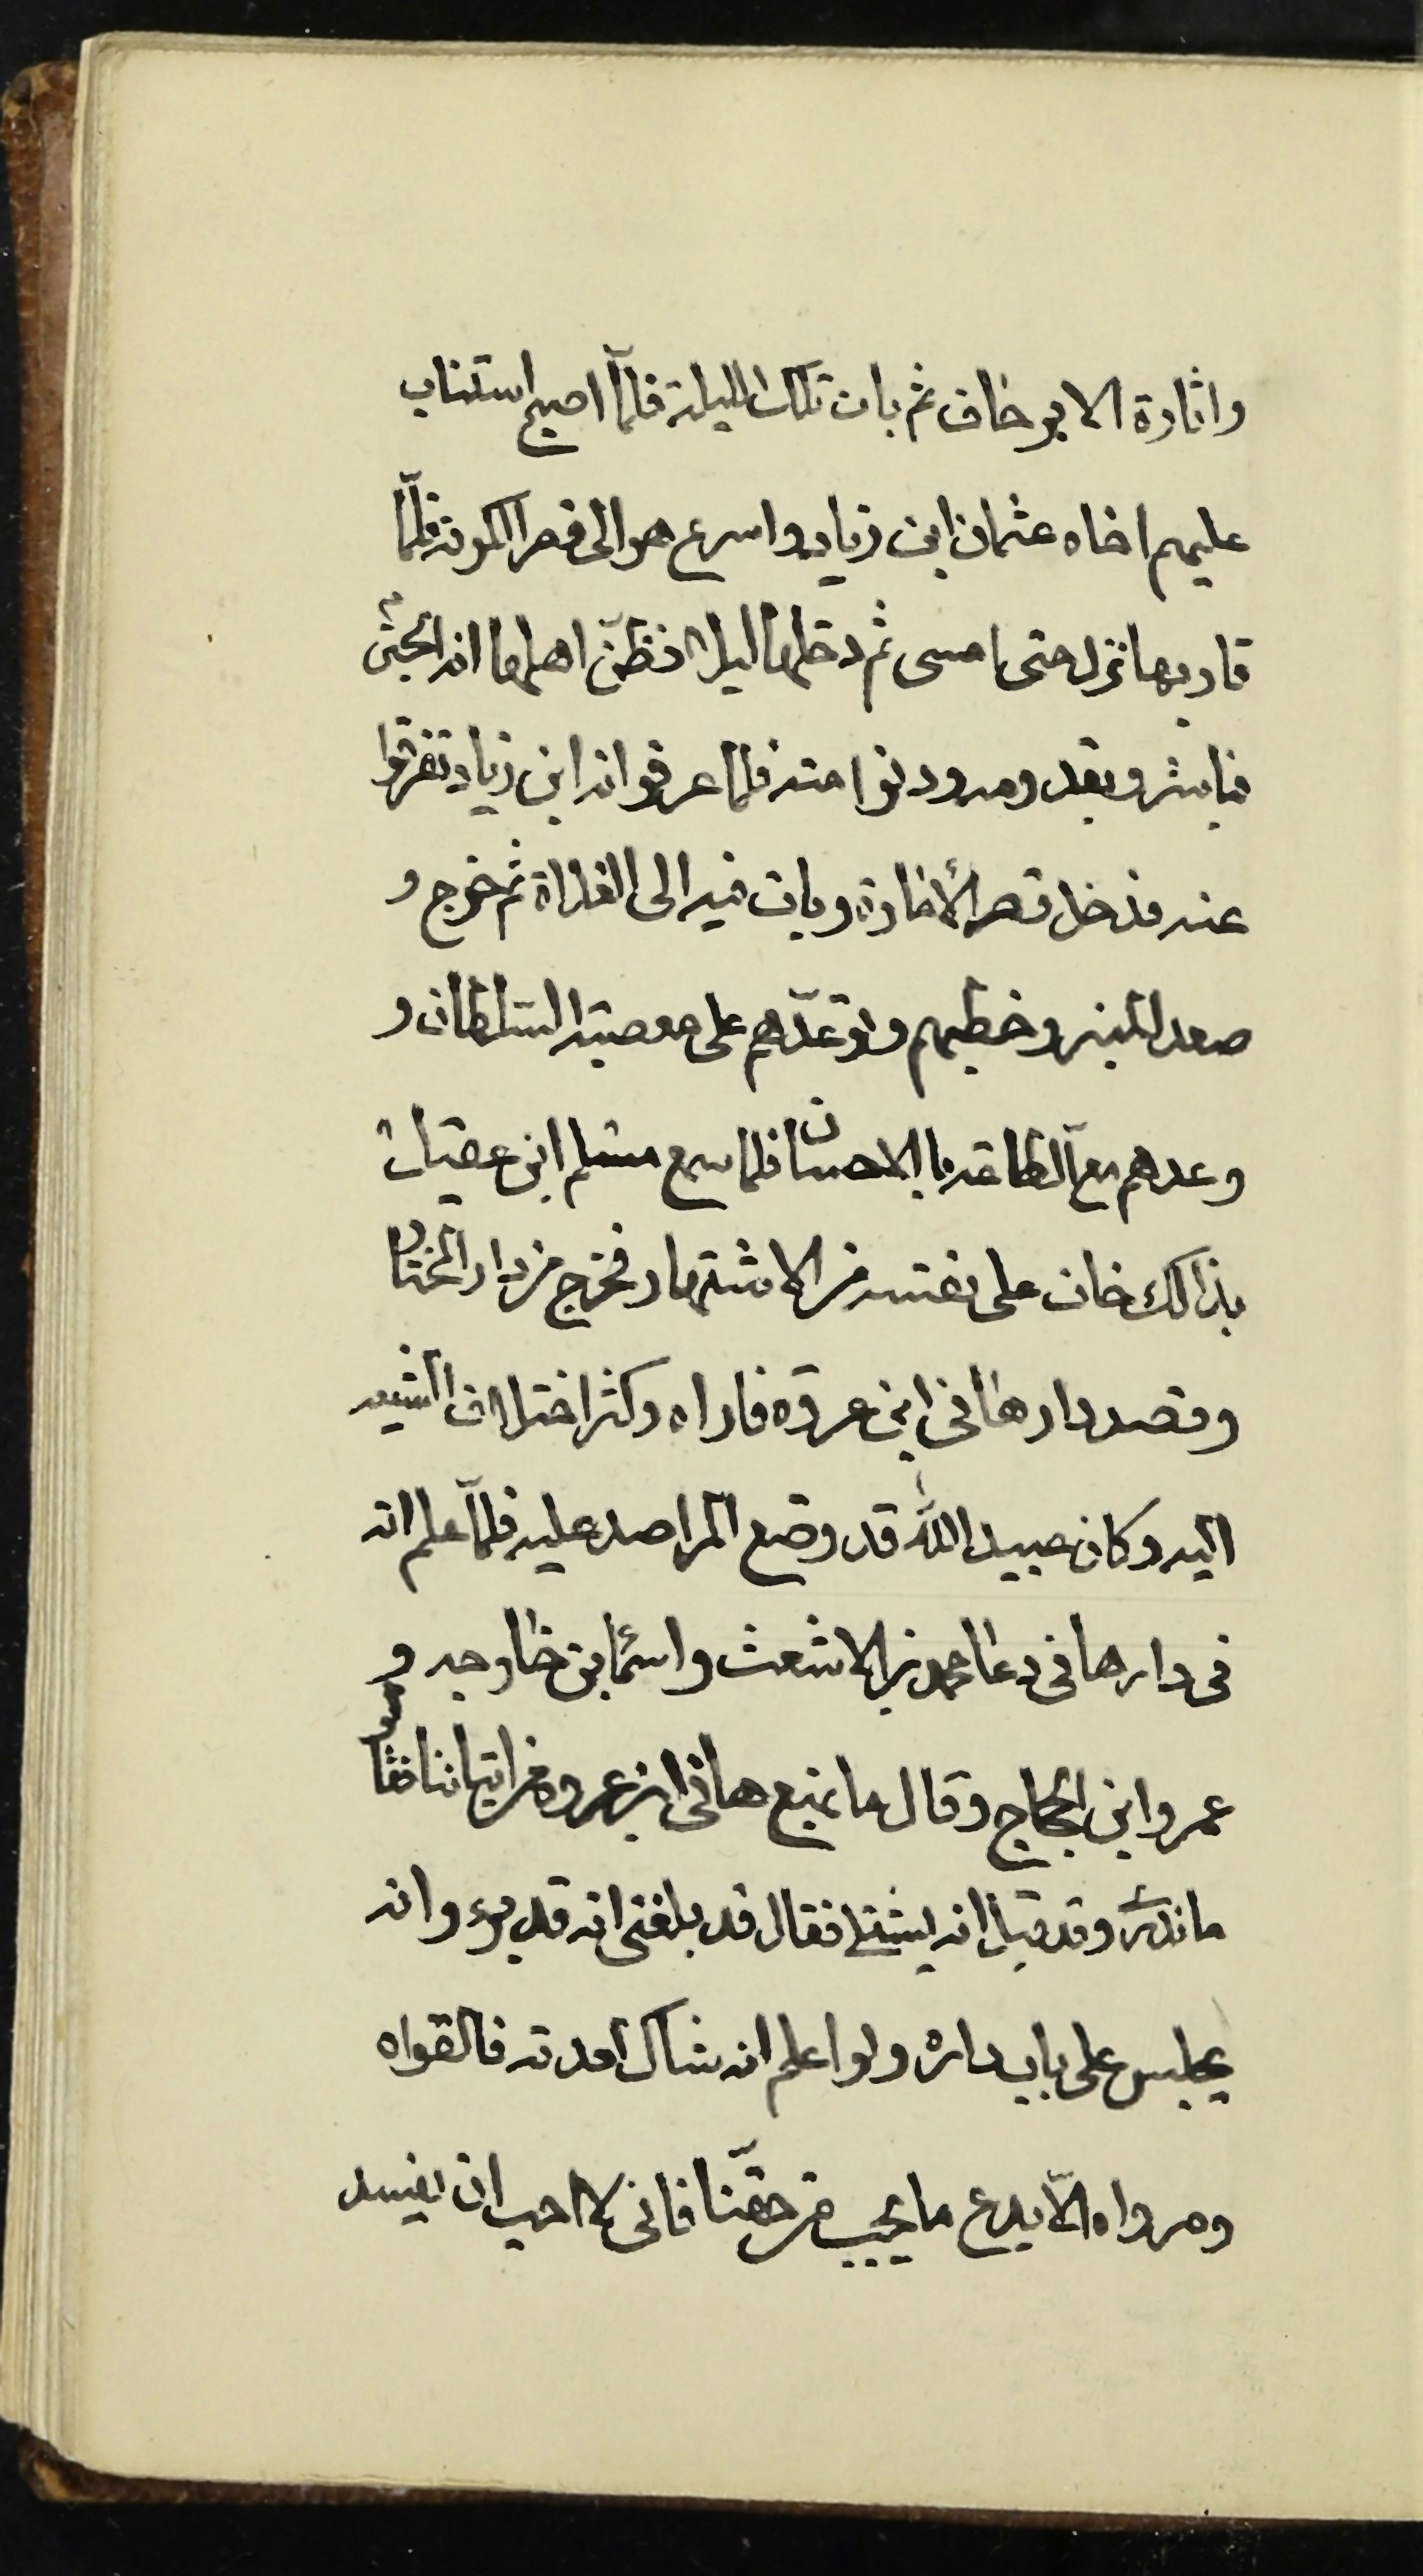 واثارة الا برخاف ثم بات تلك الليلة فلمّا اصبح استناب
عليهم اخاه عثمان ابن زياد واسرع هو الى قصر الكوفة فلمّا
قاربها نزل حتى امسى ثم دخلها ليلا فظنّ اهلها انه الحسين
فباشروا بقدومه ودنوا منه فلما عرفوا انه ابن زياد تفرقوا
عنه فدخل قصر الأمارة وبات فيه الى الغداة ثم خرج و
صعد المنبر وخطبهم وتوعّدهم على معصية السلطان و
وعدهم مع الطاعة بالاحسان فلما سمع مسلم ابن عقيل
بذالك خاف على نفسه من الاشتهار فخرج من دار المختار
وقصد دار هانى ابن عروة فاواه وكثر اختلاف الشيعه
اليه وكان عبيد الله قد وضع المراصد عليه فلمّا علم انه
فى دار هانى دعا محمد بن الاشعث واسماء بن خارجه و
عمرو ابن الحجاج وقال ما يمنع هانى ابن عروه من اتياننا فقالوا
ما ندرى وقد قيل انه يشتكى فقال قد بلغنى انه قد برء وانه
يجلس على باب داره ولو اعلم انه شاك لعدته فالقواه
ومرواه الّا يدع ما يجب من حقّنا فانى لا احب ان يفسد